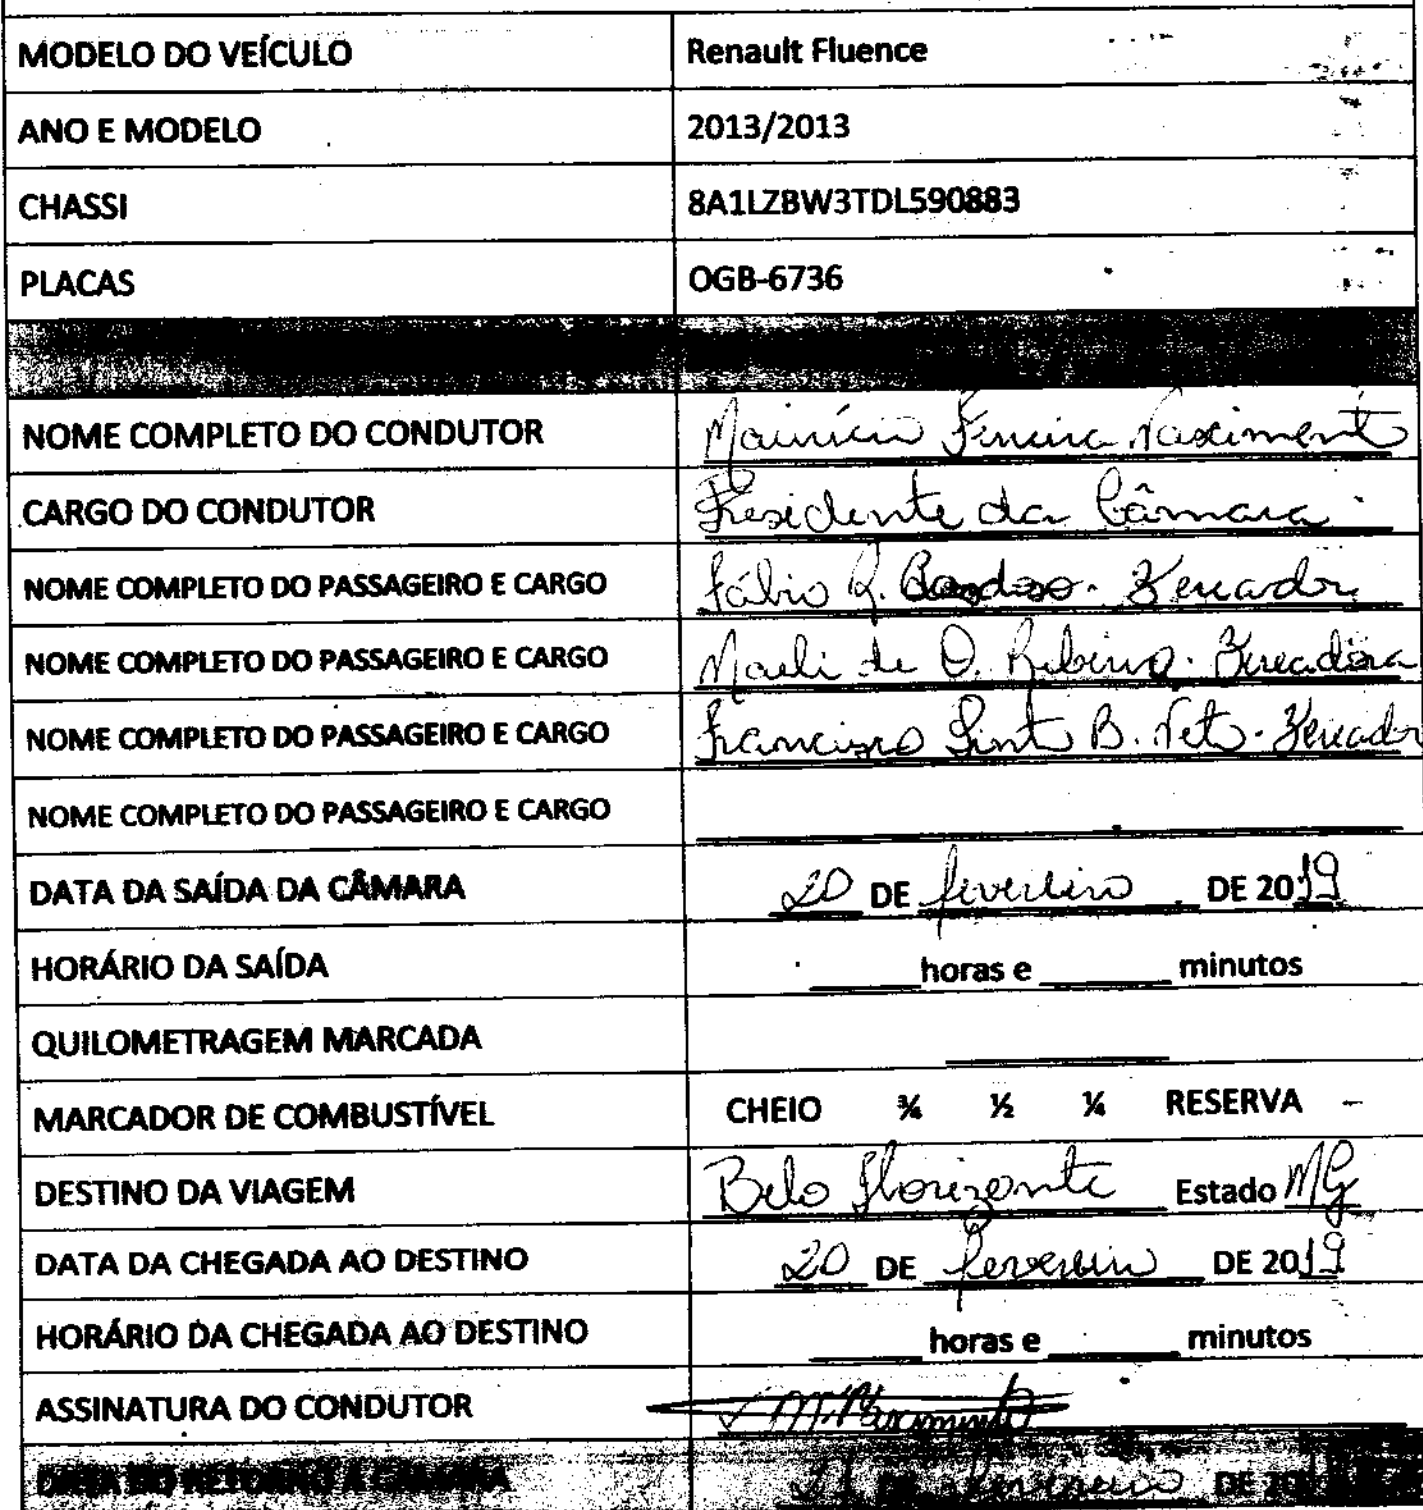 MODELO DO VEÍCULO Renault Fluence
ANO E MODELO 2013/2013
CHASSI 8A1LZBW3TDL590883
PLACAS OGB-6736
NOME COMPLETO DO CONDUTOR Maurício Ferreira Nascimento
CARGO DO CONDUTOR Presidente da Câmara
NOME COMPLETO DO PASSAGEIRO E CARGO Fábio R. Cardoso - Vereador
NOME COMPLETO DO PASSAGEIRO E CARGO Marli de O. Ribeiro - Vereadora
NOME COMPLETO DO PASSAGEIRO E CARGO Francisco B. Neto - Vereador
NOME COMPLETO DO PASSAGEIRO E CARGO
DATA DA SAÍDA DA CÂMARA 20 DE fevereiro DE 2019
HORÁRIO DA SAÍDA horas e minutos
QUILOMETRAGEM MARCADA
MARCADOR DE COMBUSTÍVEL CHEIO ¾ ½ ¼ RESERVA
DESTINO DA VIAGEM Belo Horizonte Estado MG
DATA DA CHEGADA AO DESTINO 20 DE fevereiro DE 2019
HORÁRIO DA CHEGADA AO DESTINO horas e minutos
ASSINATURA DO CONDUTOR M. Nascimento
DATA DO RETORNO A CÂMARA DE fevereiro DE